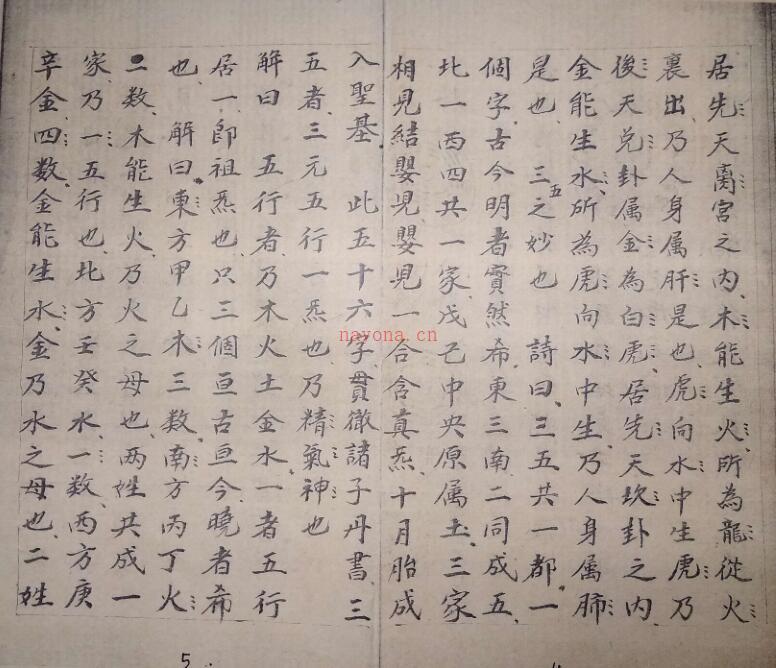 居先天离宮之内木能生火所為龍從火
裏出乃人身属肝是也虎向水中生虎乃
後天兑卦属金為白虎居先天坎卦之内
金能生水所為虎向水中生乃人身属肺
是也 三五之妙也 詩曰三五共一都一
個字古今明者實然希東三南二同成五
北一西四共一家戊己中央原属土三家
相見結嬰児嬰児一合含真炁十月胎成
入聖基 此五十六字貫徹諸子丹書三
五者三元五行一炁也乃精氣神也
解曰 五行者乃木火土金水一者五行
居一即祖炁也只三個亘古亘今曉者希
也 解曰東方甲乙木三数南方丙丁火
二数木能生火乃火之母也两姓共成一
家乃一五行也北方壬癸水一数西方庚
辛金四数金能生水金乃水之母也二姓
nayona.cn
5